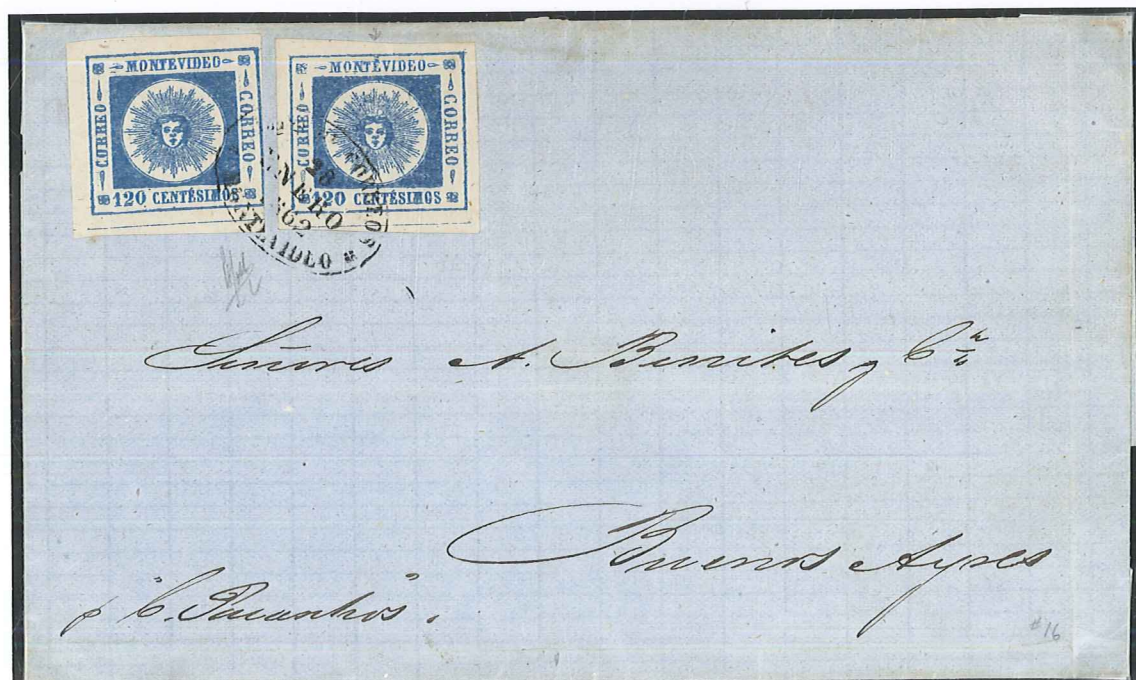 MONTEVIDEO
CORREO
CORREO
120 CENTÉSIMOS
MONTEVIDEO
CORREO
CORREO
120 CENTÉSIMOS
CORREOS
28
ENERO
1862
MONTEVIDEO
Señores A. Benites y Cª
Buenos Ayres
p "C.
#16